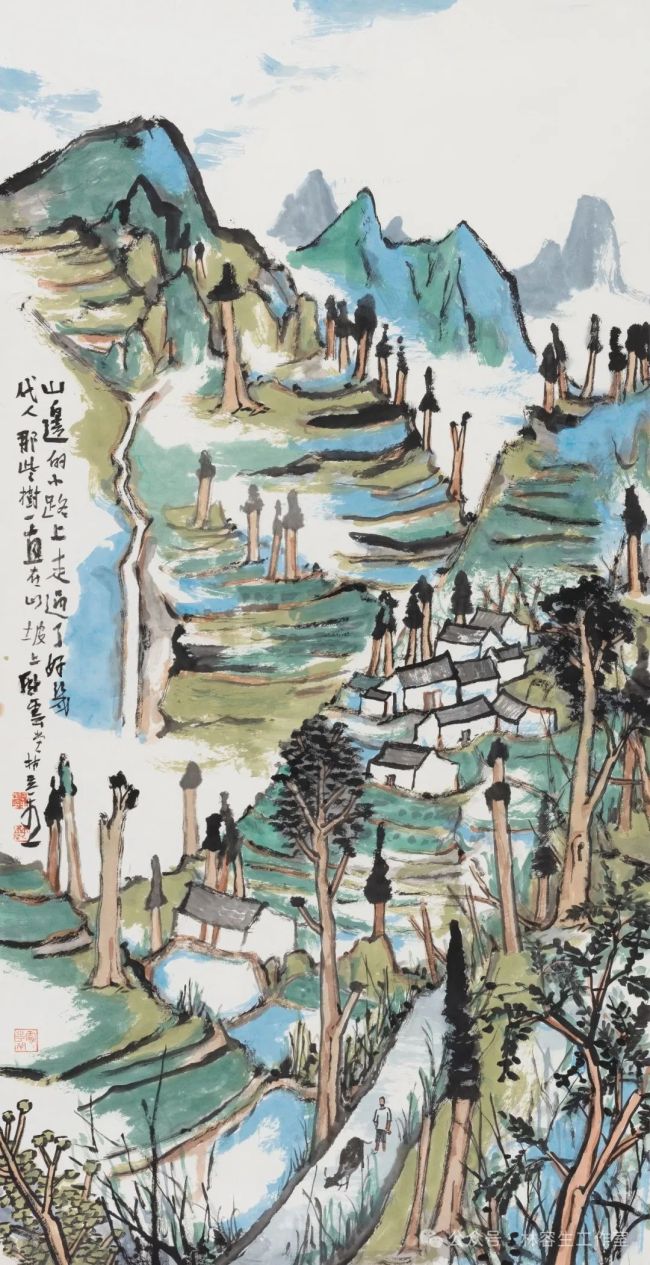 山邊的小路上走過了好幾
代人那些樹一直在山坡上卧雲堂林容生
公众号 · 林容生工作室